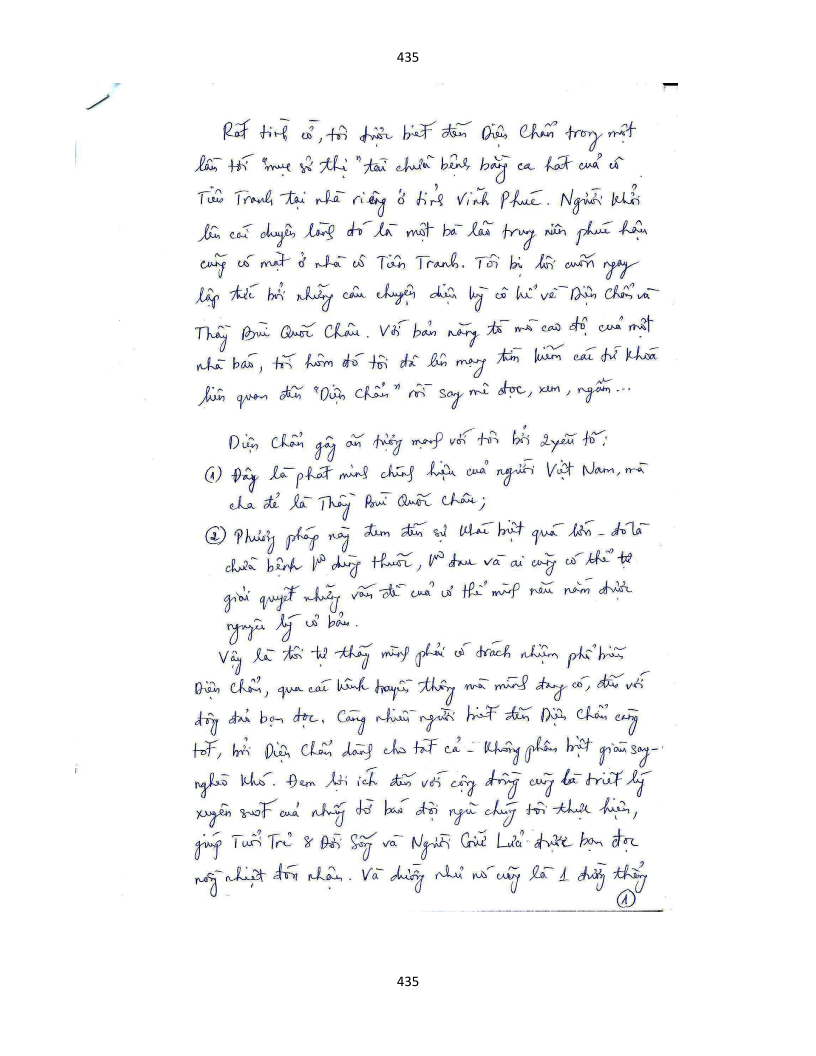 435
Rất tình cờ, tôi được biết đến Diện Chẩn trong một
lần tới "mục sở thị" tài chữa bệnh bằng ca hát của cô
Tiên Tranh tại nhà riêng ở tỉnh Vĩnh Phúc. Người khởi
lên câu chuyện lòng đó là một bà lão trung niên phúc hậu
cũng có mặt ở nhà cô Tiên Tranh. Tôi bị lôi cuốn ngay
lập tức bởi những câu chuyện diệu kỳ cô kể về Diện Chẩn và
Thầy Bùi Quốc Châu. Với bản năng tò mò cao độ của một
nhà báo, tối hôm đó tôi đã lên mạng tìm kiếm các từ khoá
liên quan đến "Diện Chẩn" rồi say mê đọc, xem, ngắm...
Diện Chẩn gây ấn tượng mạnh với tôi bởi 2 yếu tố:
① Đây là phát minh chính hiệu của người Việt Nam, mà
cha đẻ là Thầy Bùi Quốc Châu;
② Phương pháp này đem đến sự khác biệt quá lớn - đó là
chữa bệnh ko dùng thuốc, ko đau và ai cũng có thể tự
giải quyết những vấn đề của cơ thể mình nếu nắm được
nguyên lý cơ bản.
Vậy là tôi tự thấy mình phải có trách nhiệm phổ biến
Diện Chẩn, qua các kênh truyền thông mà mình đang có, đến với
đông đảo bạn đọc. Càng nhiều người biết đến Diện Chẩn càng
tốt, bởi Diện Chẩn dành cho tất cả - không phân biệt giàu sang -
nghèo khó. Đem lợi ích đến với cộng đồng cũng là triết lý
xuyên suốt của những tờ báo đội ngũ chúng tôi thực hiện,
giúp Tuổi Trẻ & Đời Sống và Người Giữ Lửa được bạn đọc
nồng nhiệt đón nhận. Và dường như nó cũng là 1 đường thẳng
①
435